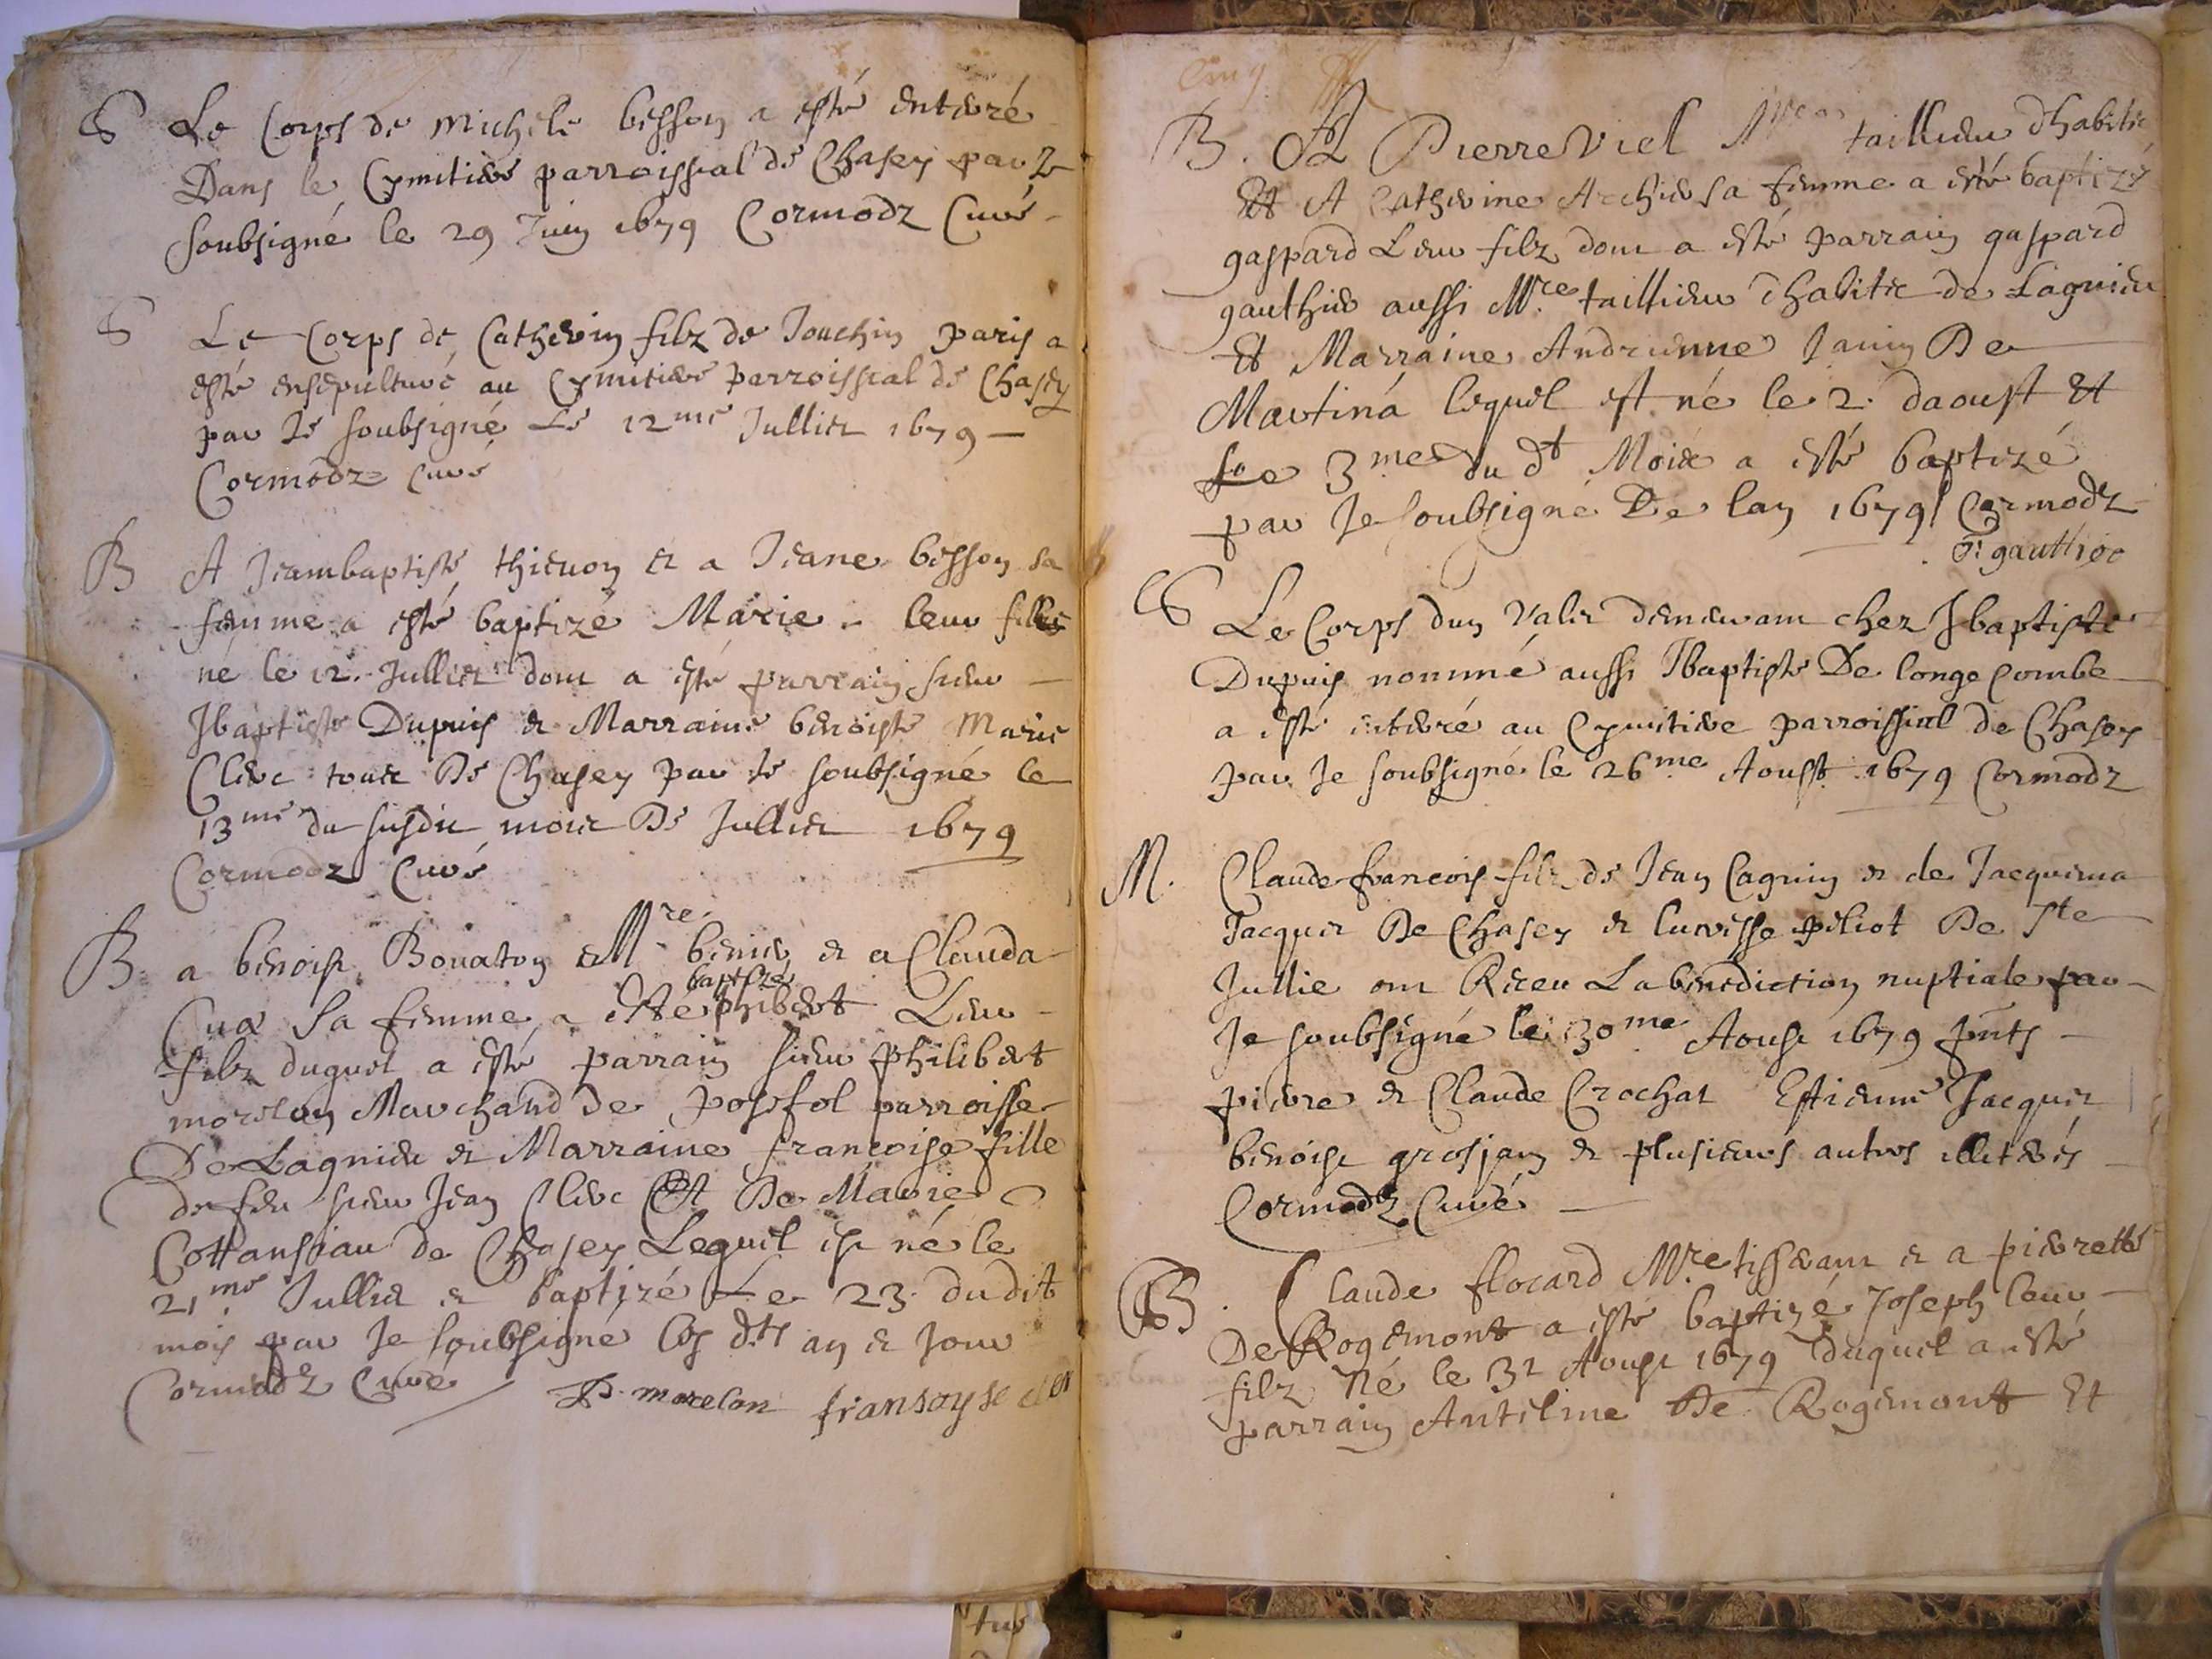 S Le Corps de Michele besson a esté enterré
Dans le Cymitiere parroissial de Chasey par Je
soubsigné le 29 Juin 1679 Cormodz Curé
S Le Corps de Catherin filz de Jouachin paris a
esté ensepulturé au Cymitiere parroissial de Chasey
par Je soubsigné Le 12me Jullier 1679
Cormodz Curé
B A Jeambaptiste thievon et a Jeane besson sa
femme a esté baptizé Marie leur fille
né le 12 Jullier dont a esté parrain sieur
Jbaptiste Dupuis et Marraine benoiste Marie
Clerc tout De Chasey par Je soubsigné le
13me du susdit mois De Jullier 1679
Cormodz Curé
B. a benoist Bonaton Mre et a Clauda
baptizé
sa femme a esté phibert Leur
filz duquel a esté parrain sieur philibert
morelon Marchand de posafol parroisse
De Lagnieu et Marraine francoise fille
de feu sieur Jean Clerc Et De Marie
de Chasey Lequel est né le
21me Jullier et baptizé Le 23 dudit
mois par Je soubsigné les dts an et Jour
Cormodz Curé P. morelon fransoyse
B. A Pierre Viel tailleur dhabitz
Et A Catherine Archier sa femme a esté baptizé
gaspard Leur filz dont a esté parrain gaspard
gauthier aussi Mre taillieur dhabitz de Lagnieu
Et Marraine Andrienne Janin De
Martina lequel est né le 2. daoust Et
Le 3me du dt Mois a esté baptizé
par Je soubsigné De lan 1679 Cormodz
gauthier
S Le Corps dun Valet demeurant chez Jbaptiste
Dupuis nommé aussi Jbaptiste De longecombe
a esté enterré au Cymitiere parroissial de Chasey
par Je soubsigné le 26me Aoust 1679 Cormodz
M. Claude francois filz de Jean Cagnin et de Jacquema
Jacquet De Chasey et peliot De Ste
Jullie ont Receu La benediction nuptiale par
Je soubsigné le 30me Aoust 1679 pnts
pierre et Claude Crochat Estienne Jacquet
benoist grosjean et plusieurs autres illiterés
Cormodz Curé
B. Claude flocard Mre tisserant et a pierrette
De Rogemont a esté baptizé Joseph leur
filz Né le 31 Aoust 1679 duquel a esté
parrain Antelme De Rogemont Et